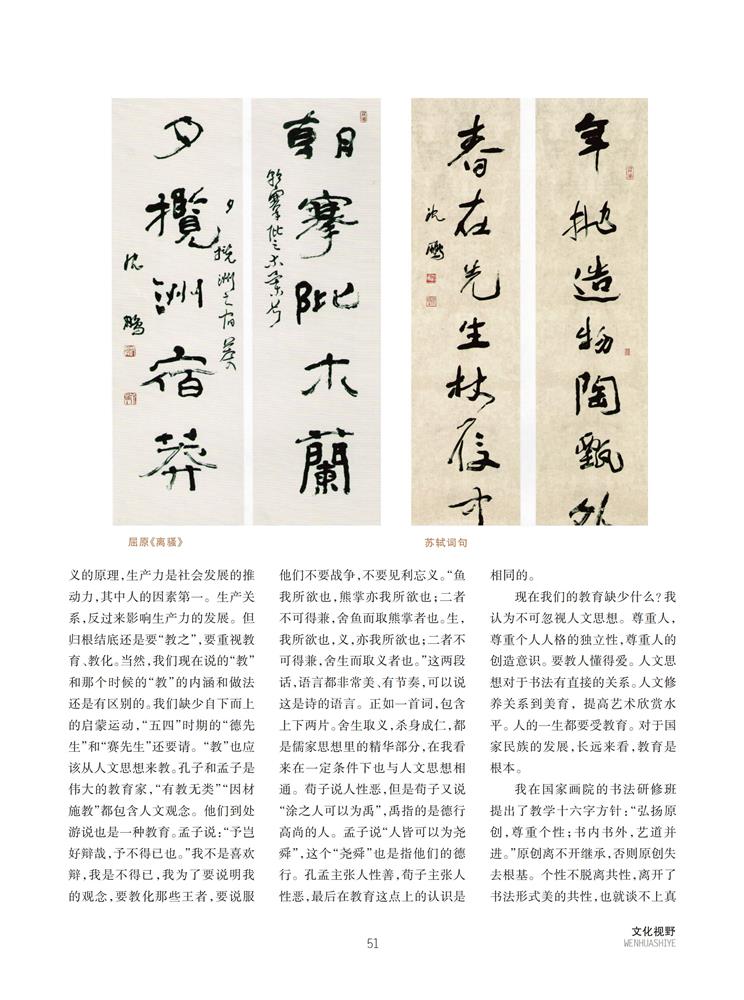 朝搴阰木蘭
朝搴阰之木兰兮
夕攬洲宿莽
夕揽洲之宿莽
沈鹏
年抛造物陶甄外
春在先生杖屦中
沈鹏
屈原《离骚》
苏轼词句
义的原理，生产力是社会发展的推
动力，其中人的因素第一。生产关
系，反过来影响生产力的发展。但
归根结底还是要“教之”，要重视教
育、教化。当然，我们现在说的“教”
和那个时候的“教”的内涵和做法
还是有区别的。我们缺少自下而上
的启蒙运动，“五四”时期的“德先
生”和“赛先生”还要请。“教”也应
该从人文思想来教。孔子和孟子是
伟大的教育家，“有教无类”“因材
施教”都包含人文观念。他们到处
游说也是一种教育。孟子说：“予岂
好辩哉，予不得已也。”我不是喜欢
辩，我是不得已，我为了要说明我
的观念，要教化那些王者，要说服
他们不要战争，不要见利忘义。“鱼
我所欲也，熊掌亦我所欲也；二者
不可得兼，舍鱼而取熊掌者也。生，
我所欲也，义，亦我所欲也；二者不
可得兼，舍生而取义者也。”这两段
话，语言都非常美、有节奏，可以说
这是诗的语言。正如一首词，包含
上下两片。舍生取义，杀身成仁，都
是儒家思想里的精华部分，在我看
来在一定条件下也与人文思想相
通。荀子说人性恶，但是荀子又说
“涂之人可以为禹”，禹指的是德行
高尚的人。孟子说“人皆可以为尧
舜”，这个“尧舜”也是指他们的德
行。孔孟主张人性善，荀子主张人
性恶，最后在教育这点上的认识是
相同的。
现在我们的教育缺少什么？我
认为不可忽视人文思想。尊重人，
尊重个人人格的独立性，尊重人的
创造意识。要教人懂得爱。人文思
想对于书法有直接的关系。人文修
养关系到美育，提高艺术欣赏水
平。人的一生都要受教育。对于国
家民族的发展，长远来看，教育是
根本。
我在国家画院的书法研修班
提出了教学十六字方针：“弘扬原
创，尊重个性；书内书外，艺道并
进。”原创离不开继承，否则原创失
去根基。个性不脱离共性，离开了
书法形式美的共性，也就谈不上真
文化视野
WENHUASHIYE
51